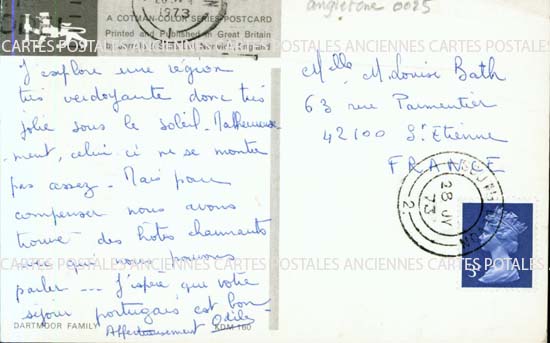 angleterre 0025
1973
A COTMAN-COLOR SERIES POSTCARD
Printed and Published in Great Britain
CARTES POSTALES ANCIENNES CARTES POSTALES ANCIENNES CARTES POSTALES
J'explore une région
très verdoyante donc très
jolie sous le soleil. Malheureuse-
ment, celui ci ne se montre
pas assez. Mais pour
compenser nous avons
trouvé des hôtes charmants
avec qui nous pouvons
parler --- J'espère que votre
séjour portugais est bon
Affectueusement Odile
DARTMOOR FAMILY KDM 160
Melle M.Louise Bath
63 rue Parmentier
42100 St Etienne
FRANCE
28 JY
73
2.
3
CARTES POSTALES ANCIENNES CARTES POSTALES ANCIENNES CARTES POSTALES